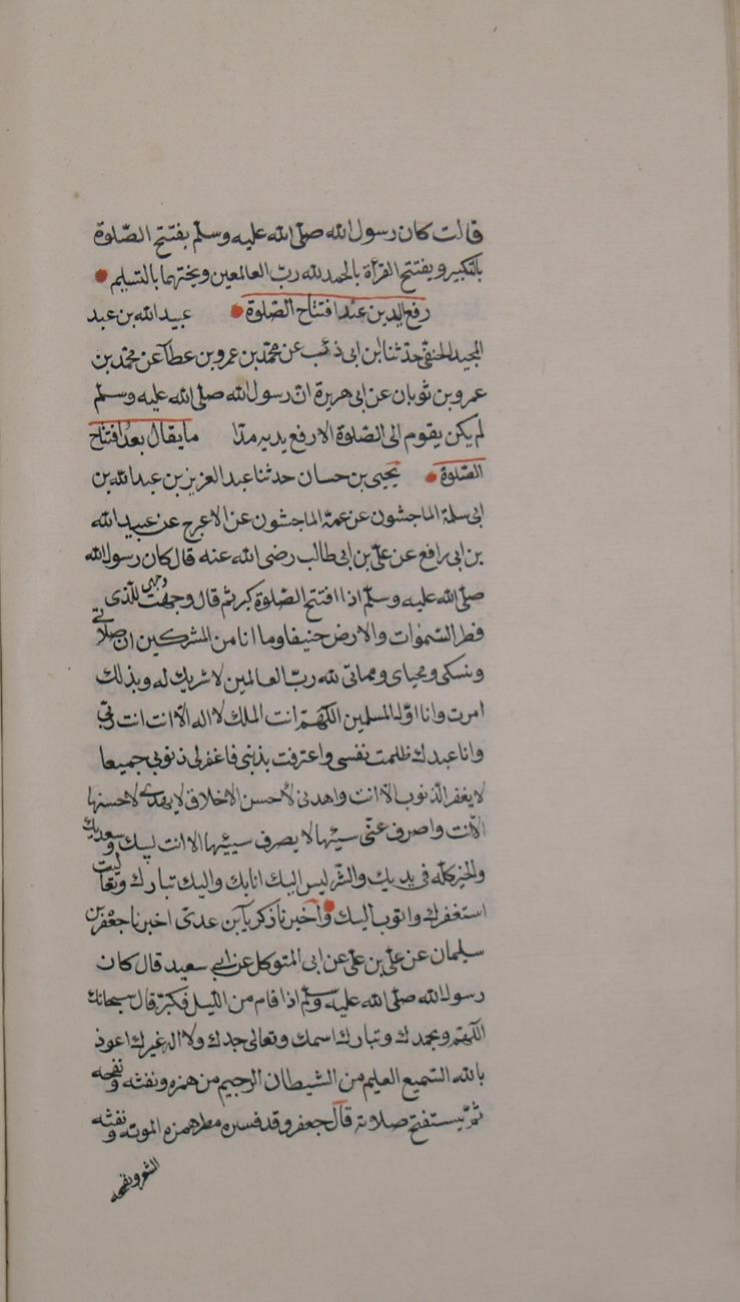 قالت كان رسول الله صلى الله عليه وسلم يفتتح الصّلوة
بالتكبير ويفتتح القرآة بالحمد لله ربّ العالمعين ويختمها بالتسليم
رفع اليدين عند افتتاح الصّلوة عبيد الله بن عبد
المجيد الحنفى حدثنا ابن ابى ذئب عن محمّد بن عمرو بن عطآ عن محمّد بن
عمرو بن ثوبان عن ابى هريرة انّ رسول الله صلى الله عليه وسلم
لم يكن يقوم الى الصّلوة الا رفع يديه مدّا ما يقال بعد افتتاح
الصّلوة يحيى بن حسان حدثنا عبد العزيز بن عبد الله بن
ابى سلمة الماجشون عن عمّه الماجشون عن الاعرج عن عبيد الله
بن ابى رافع عن على بن ابى طالب رضى الله عنه قال كان رسول الله
صلى الله عليه وسلم اذا افتتح الصّلوة كبر ثم قال وجهت وجهى للّذى
فطر السّموات والارض حنيفا وما انا من المشركين ان صلاتى
ونسكى ومحياى ومماتى لله ربّ العالمين لا شريك له وبذلك
امرت وانا اوّل المسلمين اللّهمّ انت الملك لا اله الّا انت انت ربّى
وانا عبدك ظلمت نفسى واعترفت بذنبى فاغفر لى ذنوبى جميعا
لا يغفر الذّنوب الّا انت واهدنى لأحسن الاخلاق لا يهدى لاحسنها
الّا انت واصرف عنّى سيّئها لا يصرف سيّئها الا انت لبيك وسعديك
والخير كلّه فى يديك والشّر ليس اليك انا بك واليك تباركت وتعاليت
استغفرك واتوب اليك واخبرنا ذكريا بن عدى اخبرنا جعفر بن
سليمان عن على بن على عن ابى المتوكل عن ابى سعيد قال كان
رسول الله صلى الله عليه وسلم اذا قام من الليل فكبّر قال سبحانك
اللّهمّ وبحمدك وتبارك اسمك وتعالى جدك ولا اله غيرك اعوذ
بالله السّميع العليم من الشيطان الرجيم من همزه ونفثه ونفخه
ثمّ يستفتح صلاته قال جعفر وقد فسره مطر همزه الموته ونفثه
الشعر ونفخه